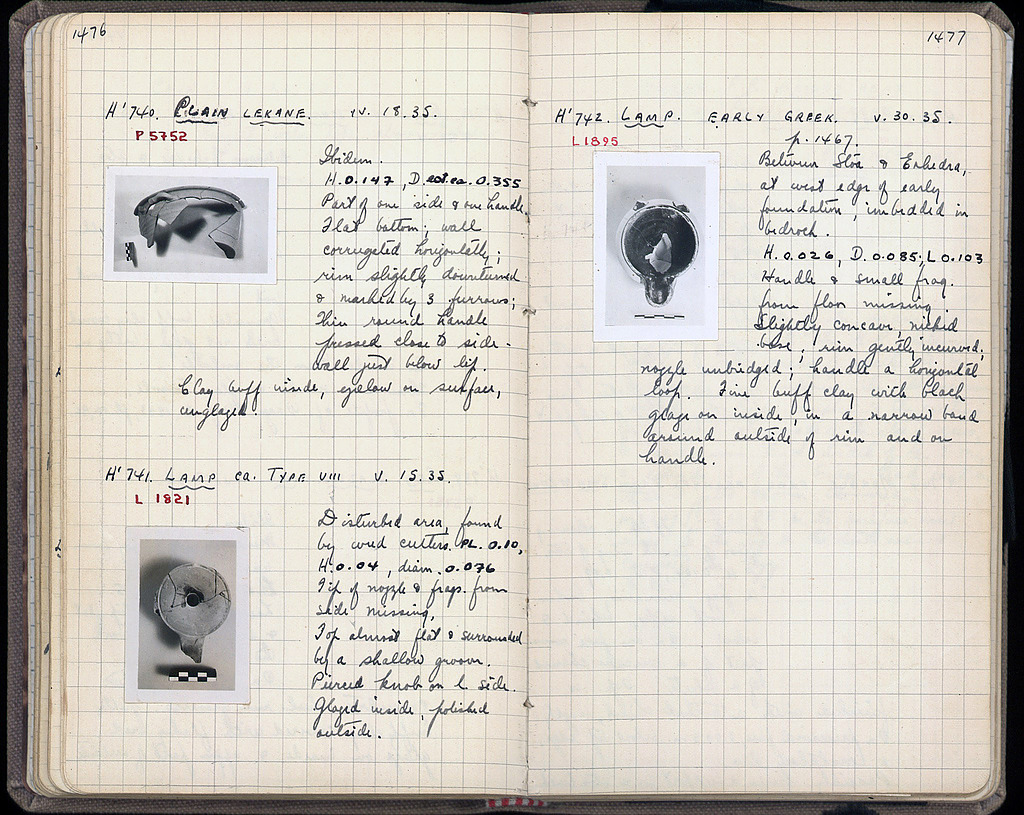 1476
H'740. PLAIN LEKANE. IV. 18.35.
P 5752
Ibidem.
H. 0.147, D. est. ca. 0.355
Part of one side & one handle.
Flat bottom; wall
corrugated horizontally;
rim slightly downturned
& marked by 3 furrows;
Thin round handle
pressed close to side-
wall just below lip.
Clay buff inside, yellow on surface,
unglazed.
H'741. LAMP ca. TYPE VIII V. 15.35.
L 1821
Disturbed area, found
by wood cutters. PL. 0.10,
H. 0.04, diam. 0.076
Tip of nozzle & frags. from
side missing.
Top almost flat & surrounded
by a shallow groove.
Pierced knob on l. side.
Glazed inside, polished
outside.
1477
H'742. LAMP. EARLY GREEK. V. 30.35.
L 1895
p. 1467.
Between Stoa & Exhedra,
at west edge of early
foundation, imbedded in
bedrock.
H. 0.026, D. 0.085; L 0.103
Handle & small frag.
from floor missing.
Slightly concave,
base; rim gently incurved;
nozzle unbridged; handle a horizontal
loop. Fine buff clay with black
glaze on inside, in a narrow band
around outside of rim and on
handle.